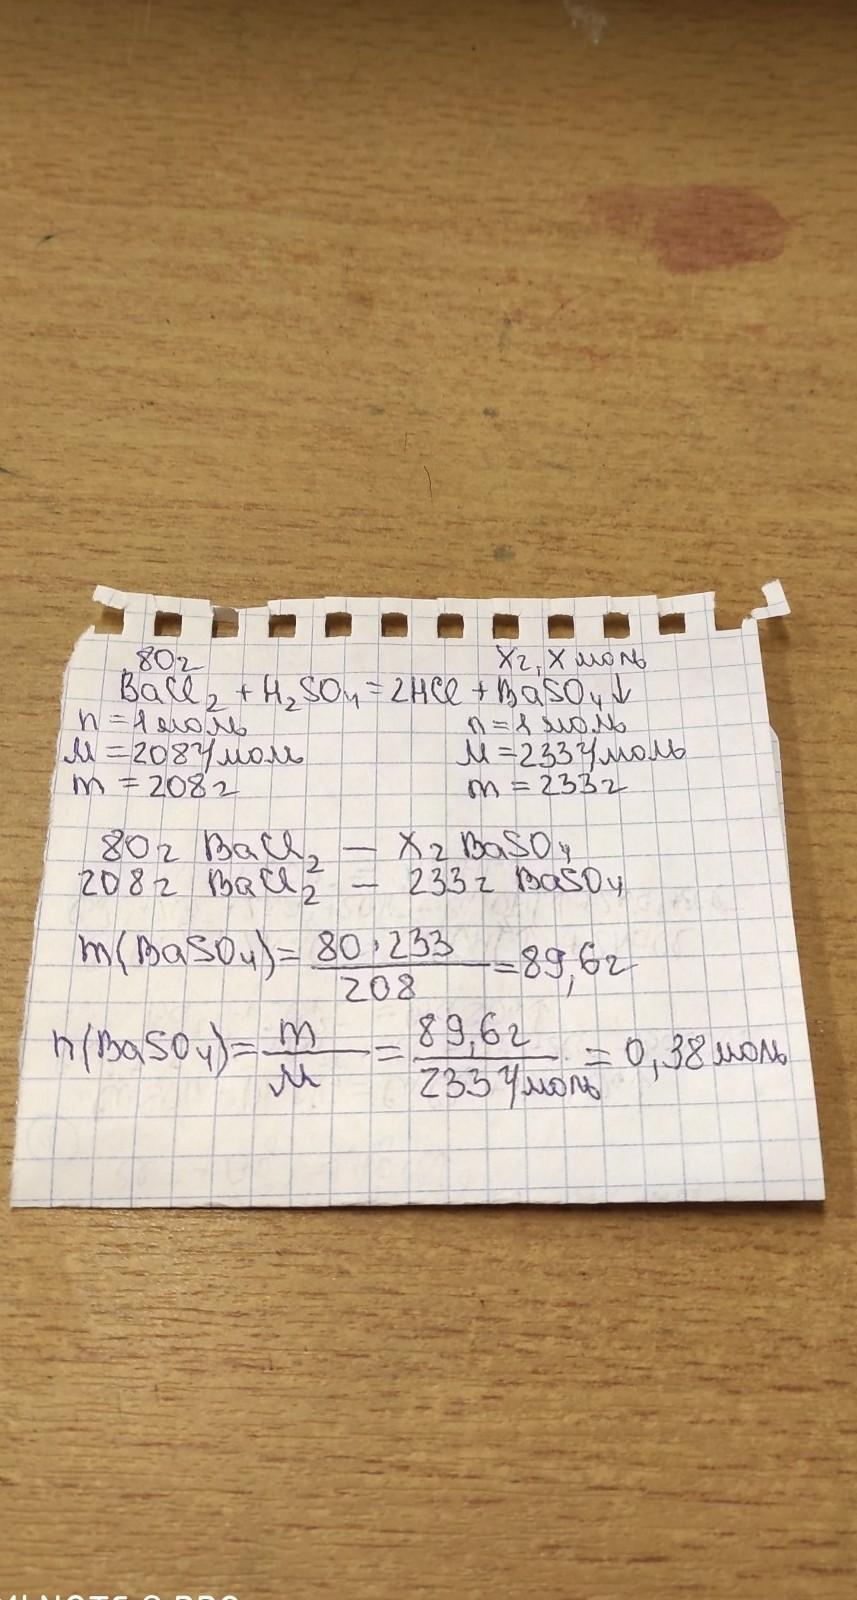 80г xг, x моль
BaCl₂ + H₂SO₄ = 2HCl + BaSO₄↓
n = 1 моль n = 1 моль
M = 208 г/моль M = 233 г/моль
m = 208 г m = 233 г
80 г BaCl₂ — x г BaSO₄
208 г BaCl₂ — 233 г BaSO₄
m(BaSO₄) = 80 · 233 / 208 = 89,6 г
n(BaSO₄) = m / M = 89,6 г / 233 г/моль = 0,38 моль